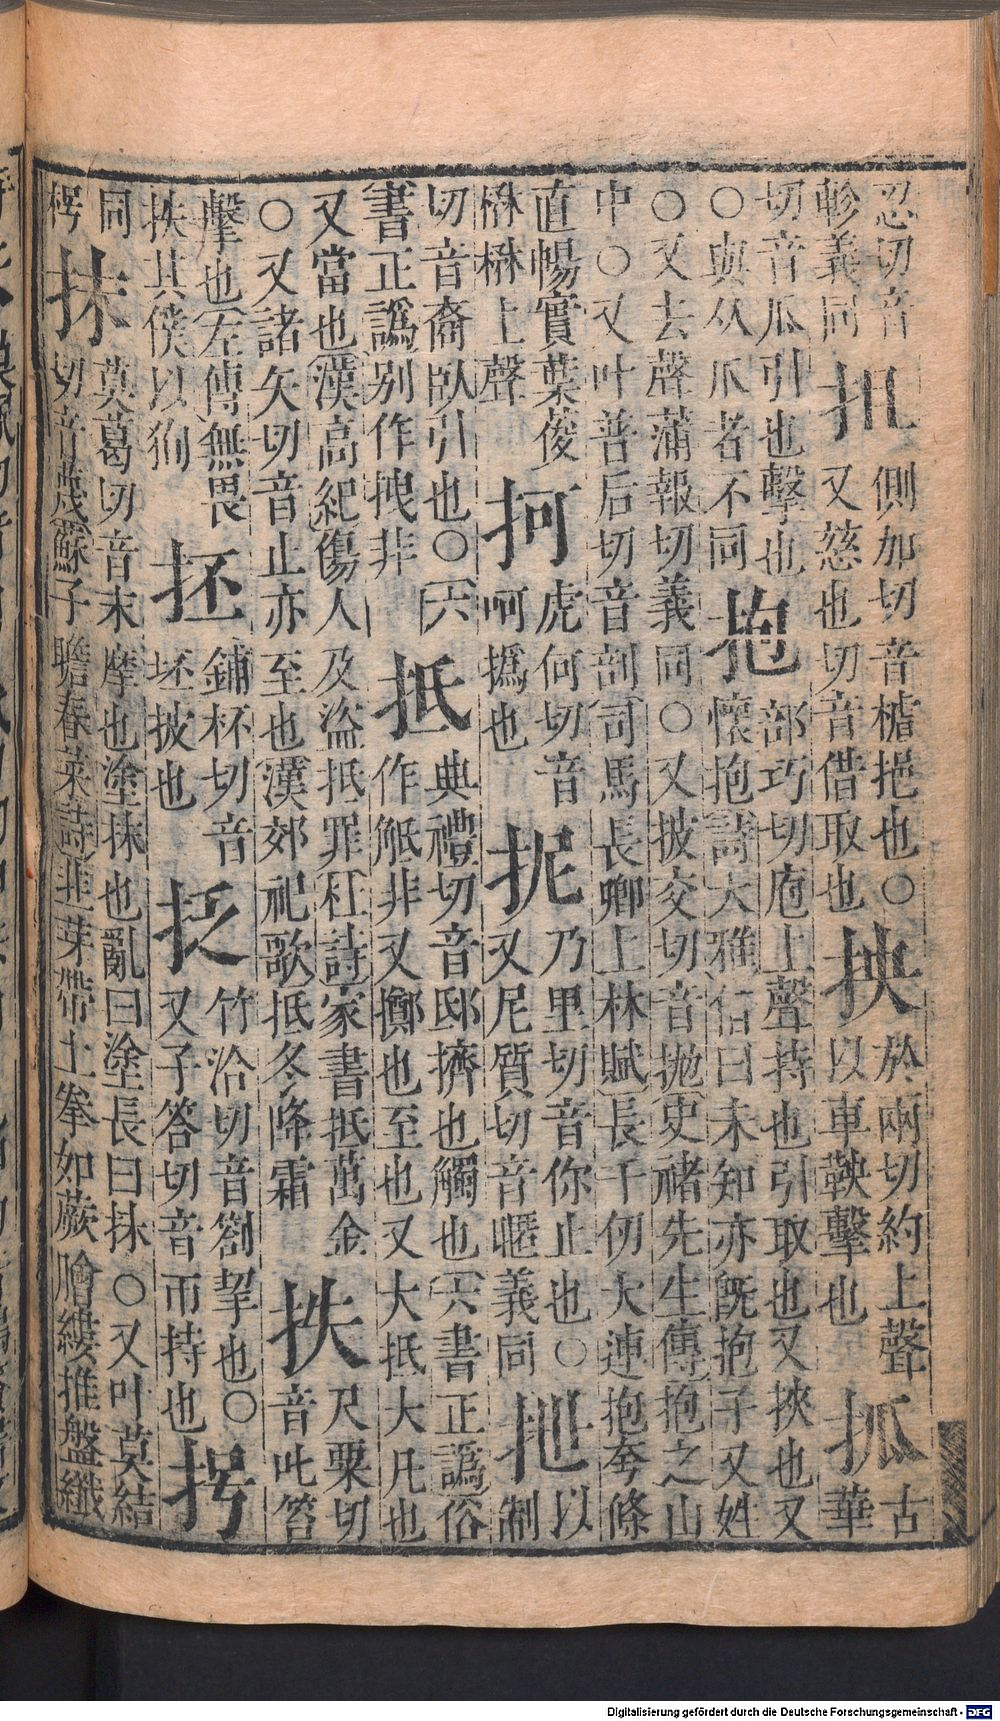 忍切音
軫義同
抯
側加切音樝挹也○
又慈也切音借取也
抰
於兩切約上聲
以車鞅擊也
㧓
古
華
切音瓜引也擊也
○與从爪者不同
抱
部巧切庖上聲持也引取也又挾也又
懷抱詩大雅借曰未知亦旣抱子又姓
○又去聲蒲報切義同○又披交切音抛史褚先生傳抱之山
中○又叶普后切音剖司馬長卿上林賦長千仞大連抱夸條
直暢實葉葰
楙楙上聲
抲
虎何切音
呵撝也
抳
乃里切音你止也○
又尼質切音暱義同
抴
以
制
切音裔臥引也○六
書正譌别作拽非
抵
典禮切音邸擠也觸也六書正譌俗
作觝非又擲也至也又大抵大凡也
又當也漢高紀傷人及盜抵罪杜詩家書抵萬金
○又諸矢切音止亦至也漢郊祀歌抵冬降霜
抶
尺栗切
音叱笞
擊也左傳無畏
抶其僕以狥
抷
鋪杯切音
坯披也
抸
竹洽切音劄挐也○
又子答切音帀持也
同
抹
莫葛切音末摩也塗抹也亂曰塗長曰抹○又叶莫結
切音蔑蘇子瞻春菜詩韭芽帶土拳如蕨膾縷推盤纖
Digitalisierung gefördert durch die Deutsche Forschungsgemeinschaft - DFG